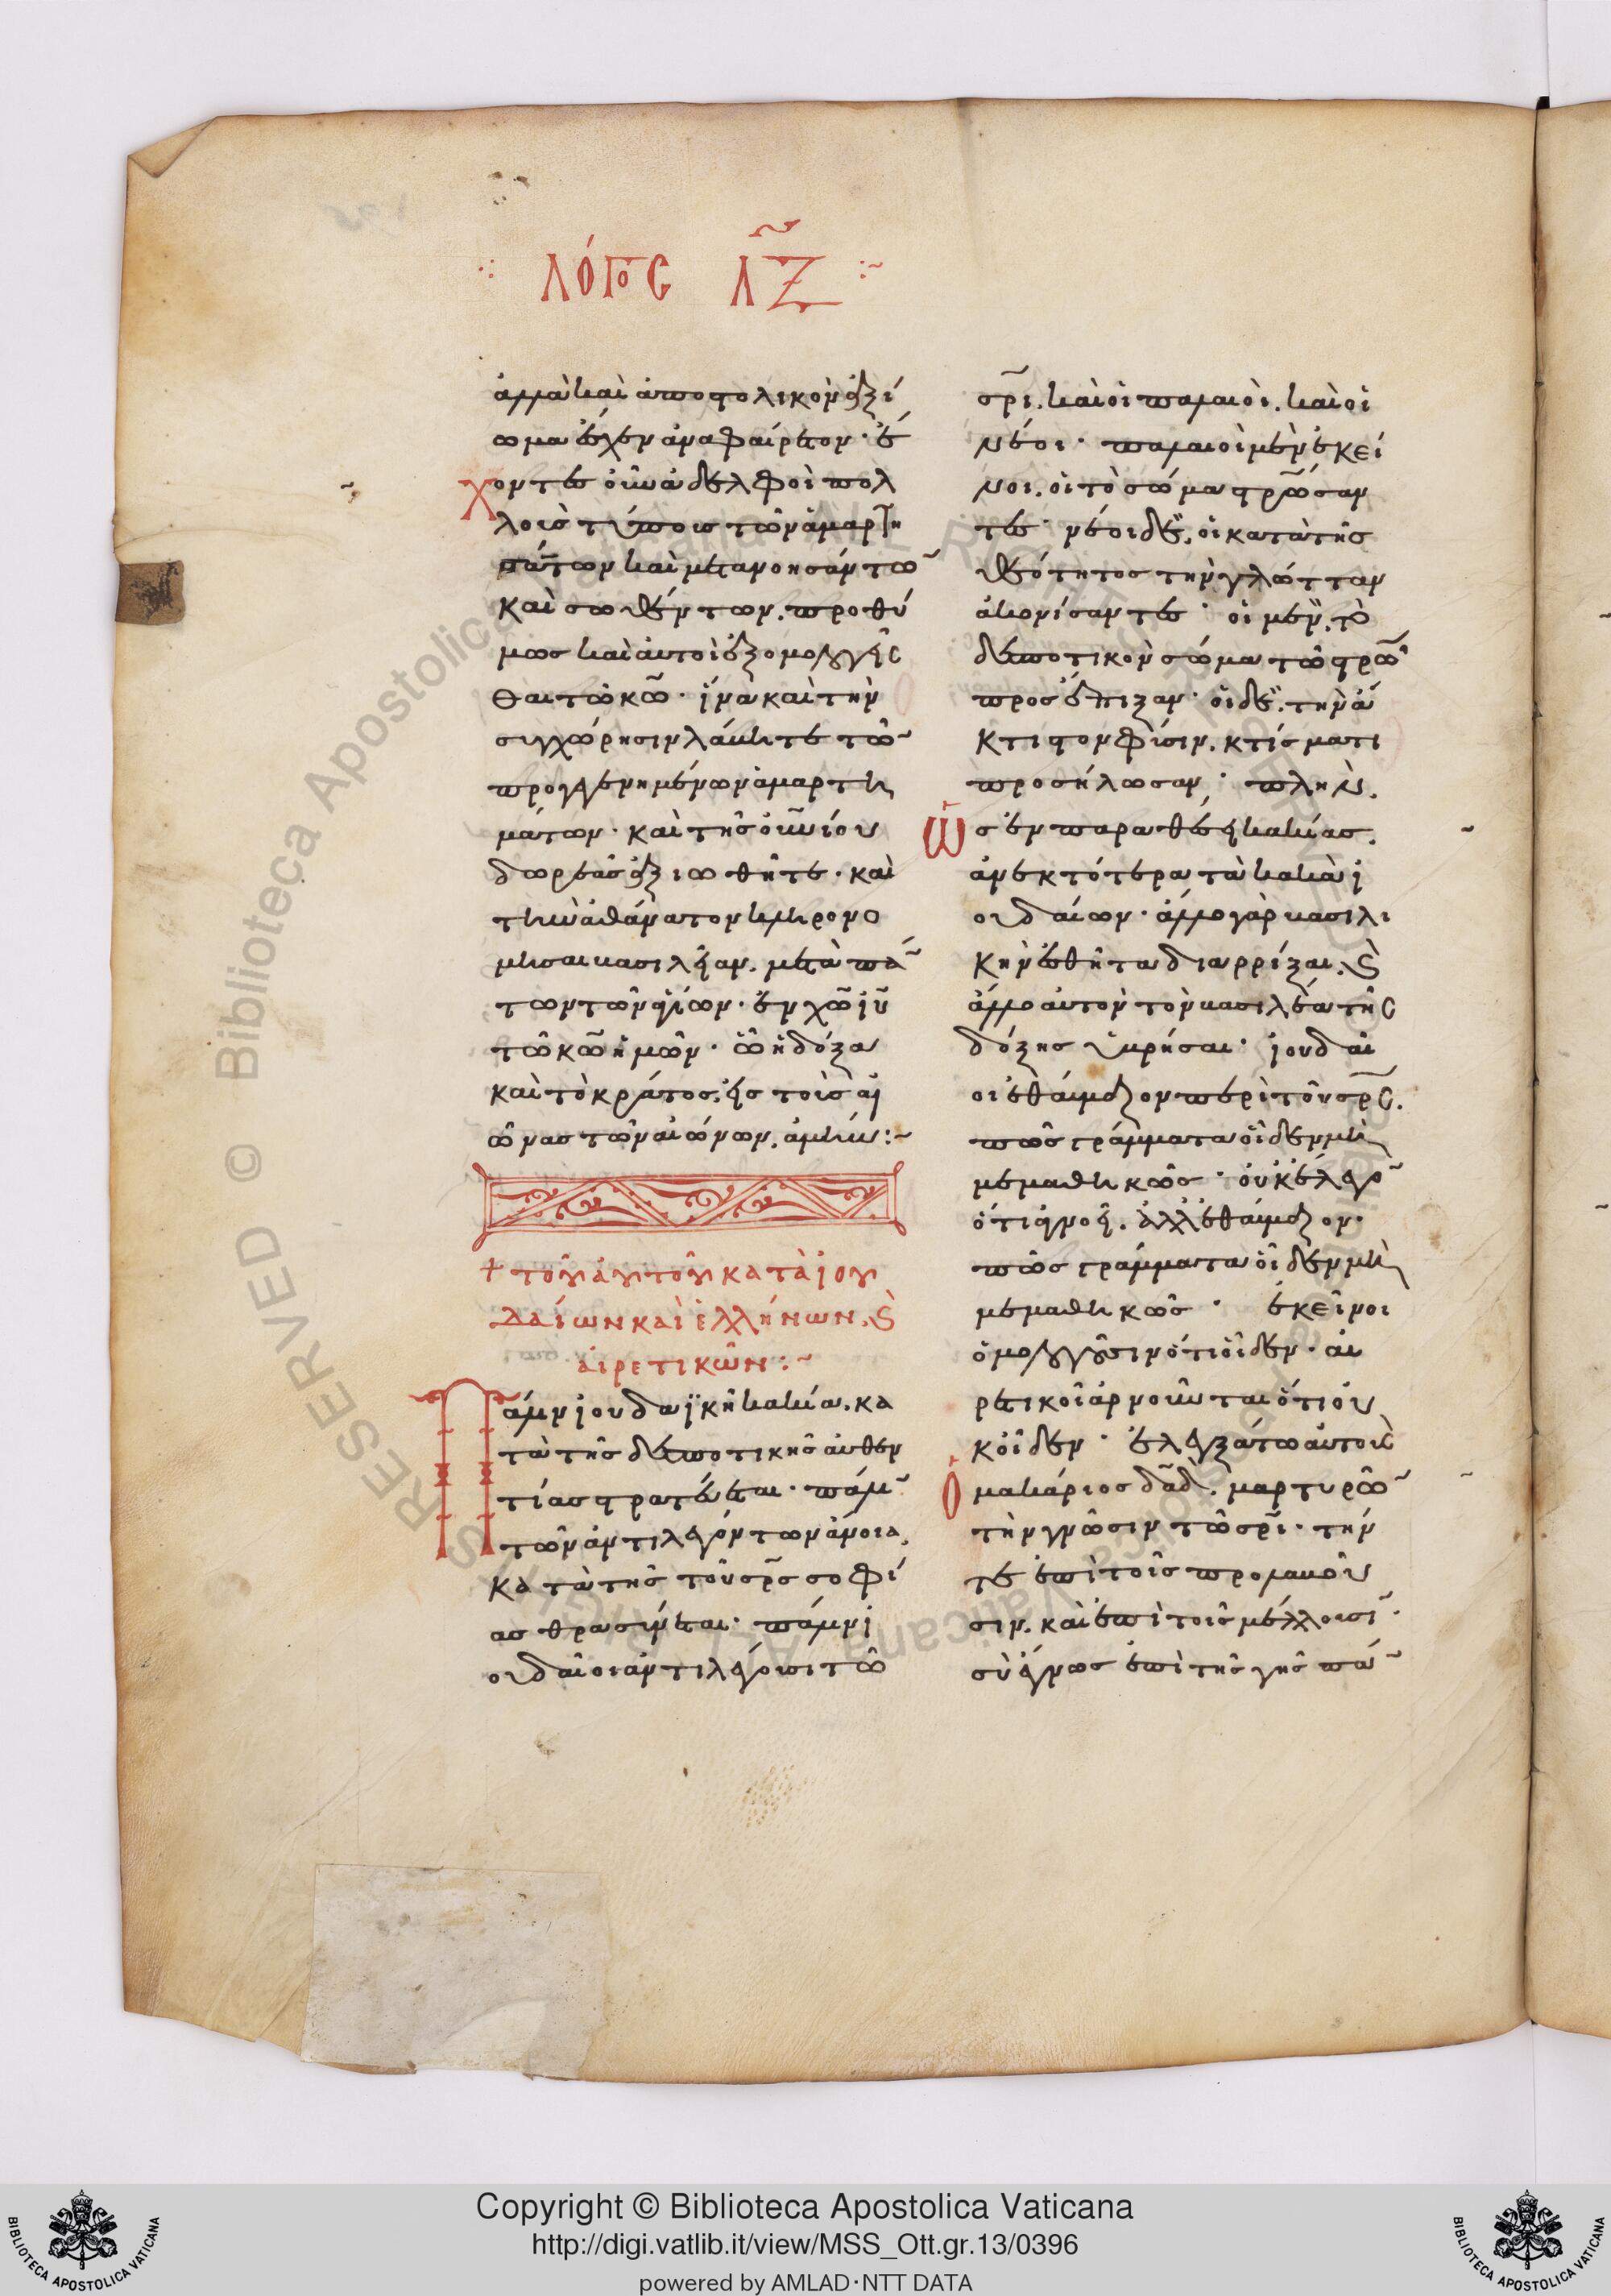 ΛΌΓΟC ΛΖ
ἀλλὰ καὶ ἀποστολικὸν ἀξί
ωμα ἔχειν ἀναφαίρετον· ἔ
χοντες οὖν ἀδελφοὶ πολ
λοὺς τύπους τῶν ἁμαρτη
σάντων καὶ μετανοησάντῶ
καὶ σωθέντων. προθύ
μως καὶ αὐτοὶ ἐξομολογεῖσ
θαι τῶ κω̅· ἵνα καὶ τὴν
συγχώρησιν λάβητε τῶ͂
προγεγενημένων ἁμαρτη
μάτων· καὶ τῆς οὐνίου
δωρεᾶς ἀξιωθῆτε· καὶ
τὴν ἀθάνατον κληρονο
μῆσαι βασιλείαν. μετὰ πά͂
των τῶν ἁγίων· ἐν χω̅ ἰυ̅
τῶ κω̅ ἡμῶν· ὧ ἡ δόξα
καὶ τὸ κράτος, εἰς τοὺς αἰ
ῶνας τῶν αἰώνων, ἀμήν:~
+ τοῦ αὐτοῦ κατὰ ἰου
δαίων καὶ ἑλλήνων, ϗ
αἱρετικῶν:~
Πάλιν ἰουδαϊκὴ κακία. κα
τὰ τῆς δεσποτικῆς αὐθεν
τίας στρατεύεται· πάλῖ
τῶν ἀντιλεγόντων ἄνοια,
κατὰ τῆς τοῦ σρ̅ς σοφί
ας θρασύνεται· πάλιν ἰ
ουδαῖοι ἀντιλέγουσι τῶ
σρ̅ι. καὶ οἱ παλαιοὶ. καὶ οἱ
νέοι· παλαιοὶ μὲν ἐκεῖ
νοι. οἱ τὸ σώμα στρω̅σαν
τες· νέοι δὲ, οἱ κατὰ τῆς
θεότητος τὴν γλώτταν
ἀκονίσαντες· οἱ μὲν, τὸ
δεσποτικὸν σῶμα τῶ στρω̅
προσέπηξαν· οἱ δὲ, τὴν ἄ
κτιστον φύσιν, κτίσματι
προσήλωσαν· πλὴν,
ὡς ἐν παραθέσει κακίας,
ἀνεκτότερα τὰ κακὰ ἰ
ουδαίων· ἄλλο γὰρ βασιλι
κὴν ἐσθῆτα διαρρῆξαι, ϗ
ἄλλο αὐτὸν τὸν βασιλέα τῆς
δόξης ὑβρίσαι· ἰουδαῖ
οι ἐθαύμαζον περὶ τοῦ σρ̅ς.
πῶς γράμματα οἶδεν μὴ
μεμαθηκῶς· οὐκ ἔλεγο͂
ὅτι ἀγνοεῖ. ἀλλ' ἐθαύμαζον·
πῶς γράμματα οἶδεν μὴ
μεμαθηκῶς· ἐκεῖνοι
ὁμολογοῦσιν ὅτι οἶδεν· αἱ
ρετικοὶ ἀρνοῦνται ὅτι οὐ
κ οἶδεν· ἐλεγξάτω αὐτοὺς
ὁ μακάριος δα̅δ, μαρτυρῶ͂
τὴν γνῶσιν τῶ σρ̅ι· τήν
τε ἐπὶ τοῖς προλαβοῦ
σιν, καὶ ἐπὶ τοῖς μέλλουσῖ·
σὺ ἔγνως ἐπὶ τῆς γῆς πά͂
Copyright © Biblioteca Apostolica Vaticana
http://digi.vatlib.it/view/MSS_Ott.gr.13/0396
powered by AMLAD·NTT DATA